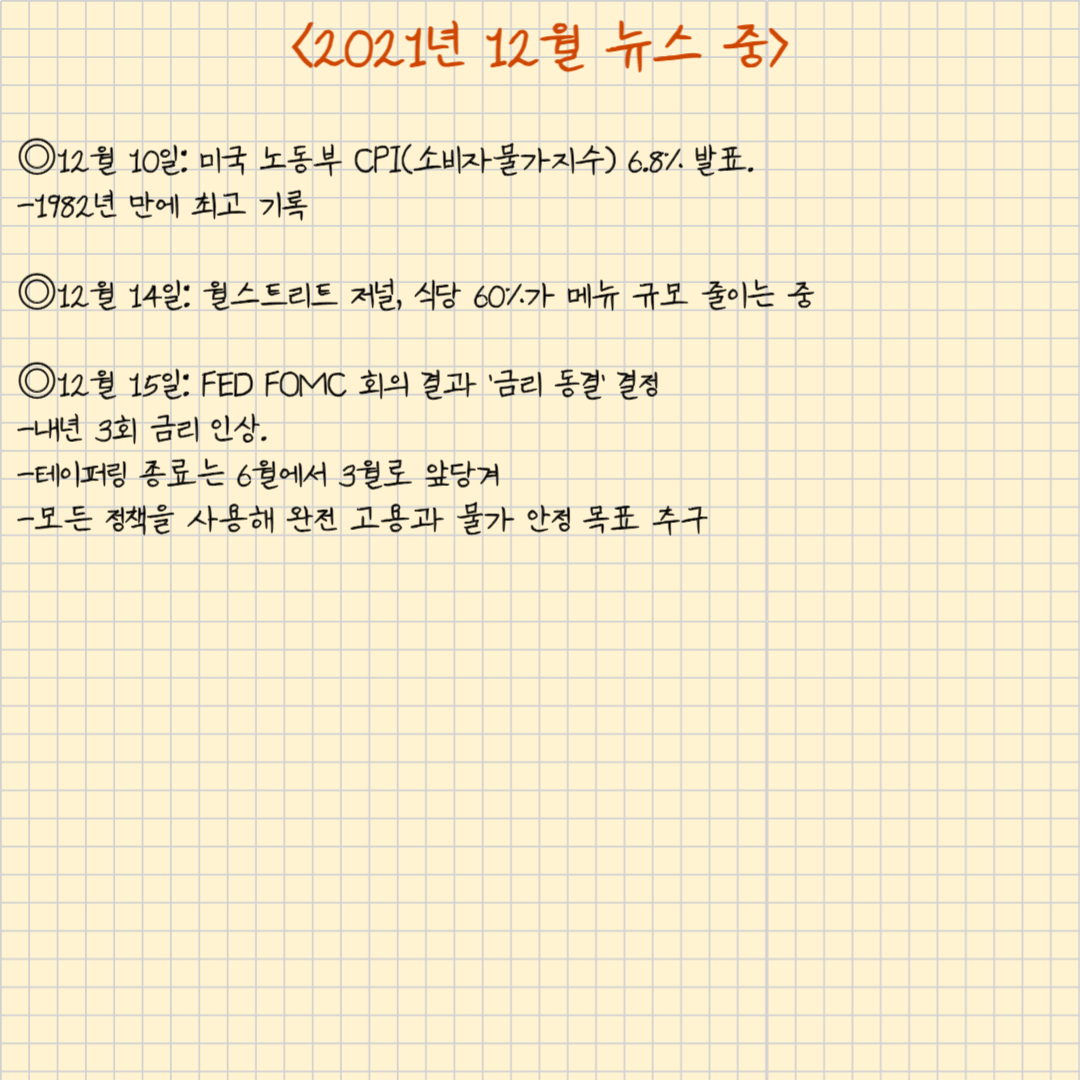 <2021년 12월 뉴스 중>
◎12월 10일: 미국 노동부 CPI(소비자물가지수) 6.8% 발표.
-1982년 만에 최고 기록
◎12월 14일: 월스트리트 저널, 식당 60%가 메뉴 규모 줄이는 중
◎12월 15일: FED FOMC 회의 결과 '금리 동결' 결정
-내년 3회 금리 인상.
-테이퍼링 종료는 6월에서 3월로 앞당겨
-모든 정책을 사용해 완전 고용과 물가 안정 목표 추구